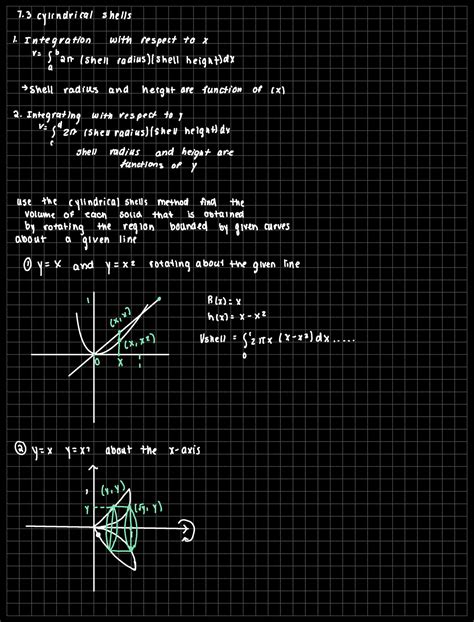 7.3 cylindrical shells
1. Integration with respect to x
V= ∫ₐᵇ 2π (shell radius)(shell height)dx
→ Shell radius and height are function of (x)
2. Integrating with respect to y
V= ∫꜀ᵈ 2π (shell radius)(shell height)dy
shell radius and height are
functions of y
use the cylindrical shells method find the
volume of each solid that is obtained
by rotating the region bounded by given curves
about a given line
① y=x and y=x² rotating about the given line
1
(x,x)
(x,x²)
0 x 1
R(x)=x
h(x)=x-x²
Vshell = ∫₀¹ 2πx (x-x²)dx.....
② y=x y=x² about the x-axis
(y,y)
y
(√y,y)